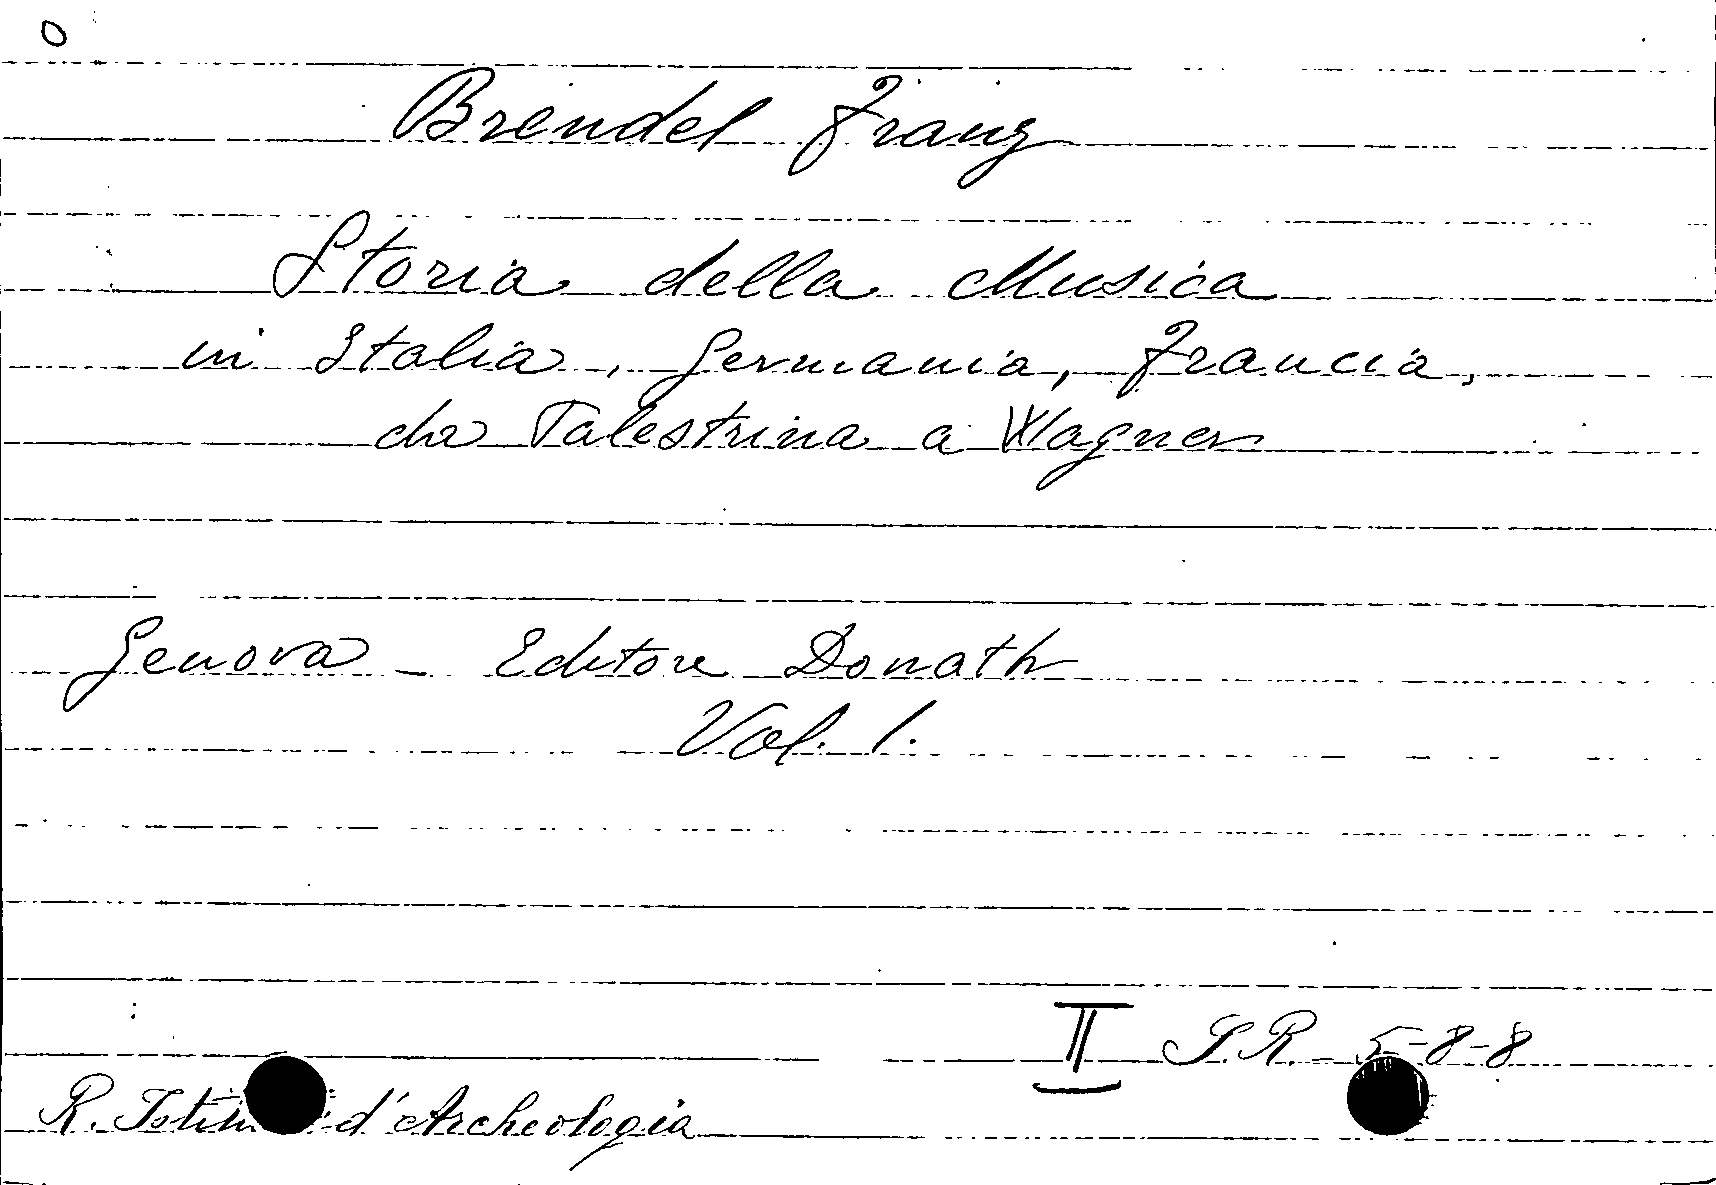 Brendel Franz
Storia della Musica
in Italia, Germania, Francia,
da Palestrina a Wagner
Genova - Editore Donath
Vol. 1.
II S.R. 5-8-8
R. d'Archeologia